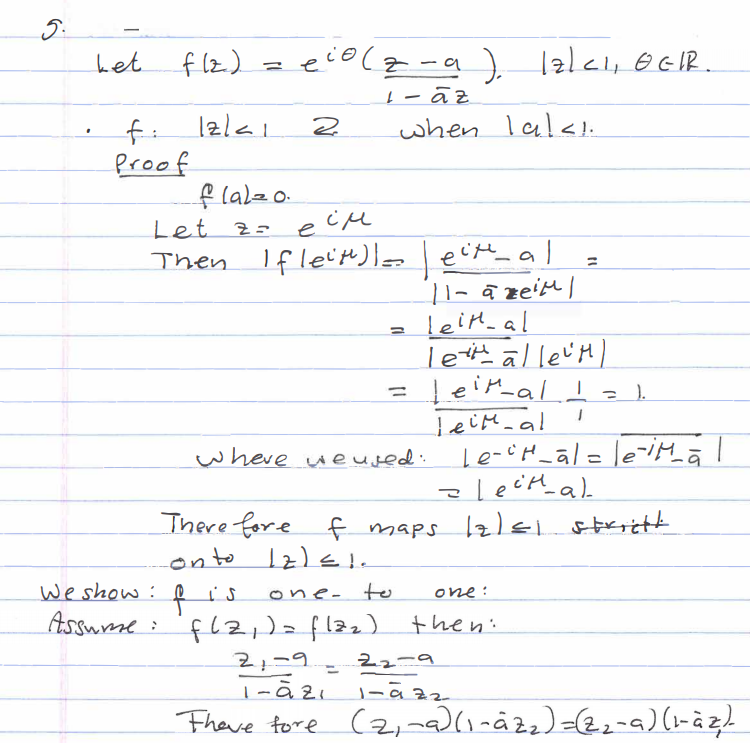 5.
Let f(z) = e^{iθ}(\frac{z-a}{1-\bar{a}z}), |z|<1, θ∈ℝ.
· f: |z|<1 when |a|<1.
Proof
f(a)=0.
Let z = e^{iμ}
Then |f(e^{iμ})| = \frac{|e^{iμ}-a|}{|1-\bar{a}e^{iμ}|} =
= \frac{|e^{iμ}-a|}{|e^{-iμ}-\bar{a}| |e^{iμ}|}
= \frac{|e^{iμ}-a|}{|e^{iμ}-a|} \frac{1}{1} = 1.
where we used: |e^{-iμ}-\bar{a}| = |\overline{e^{-iμ}-\bar{a}}|
= |e^{iμ}-a|.
Therefore f maps |z|≤1
onto |z|≤1.
We show: f is one-to one:
Assume: f(z_1)=f(z_2) then:
\frac{z_1-a}{1-\bar{a}z_1} = \frac{z_2-a}{1-\bar{a}z_2}
Therefore (z_1-a)(1-\bar{a}z_2)=(z_2-a)(1-\bar{a}z_1).